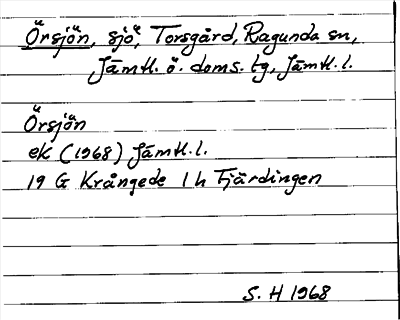 Örsjön, sjö, Torsgård, Ragunda sn,
Jämtl. ö. doms. tg, Jämtl. l.
Örsjön
ek (1968) Jämtl. l.
19 G Krångede 1 h Fjärdingen
S. H 1968